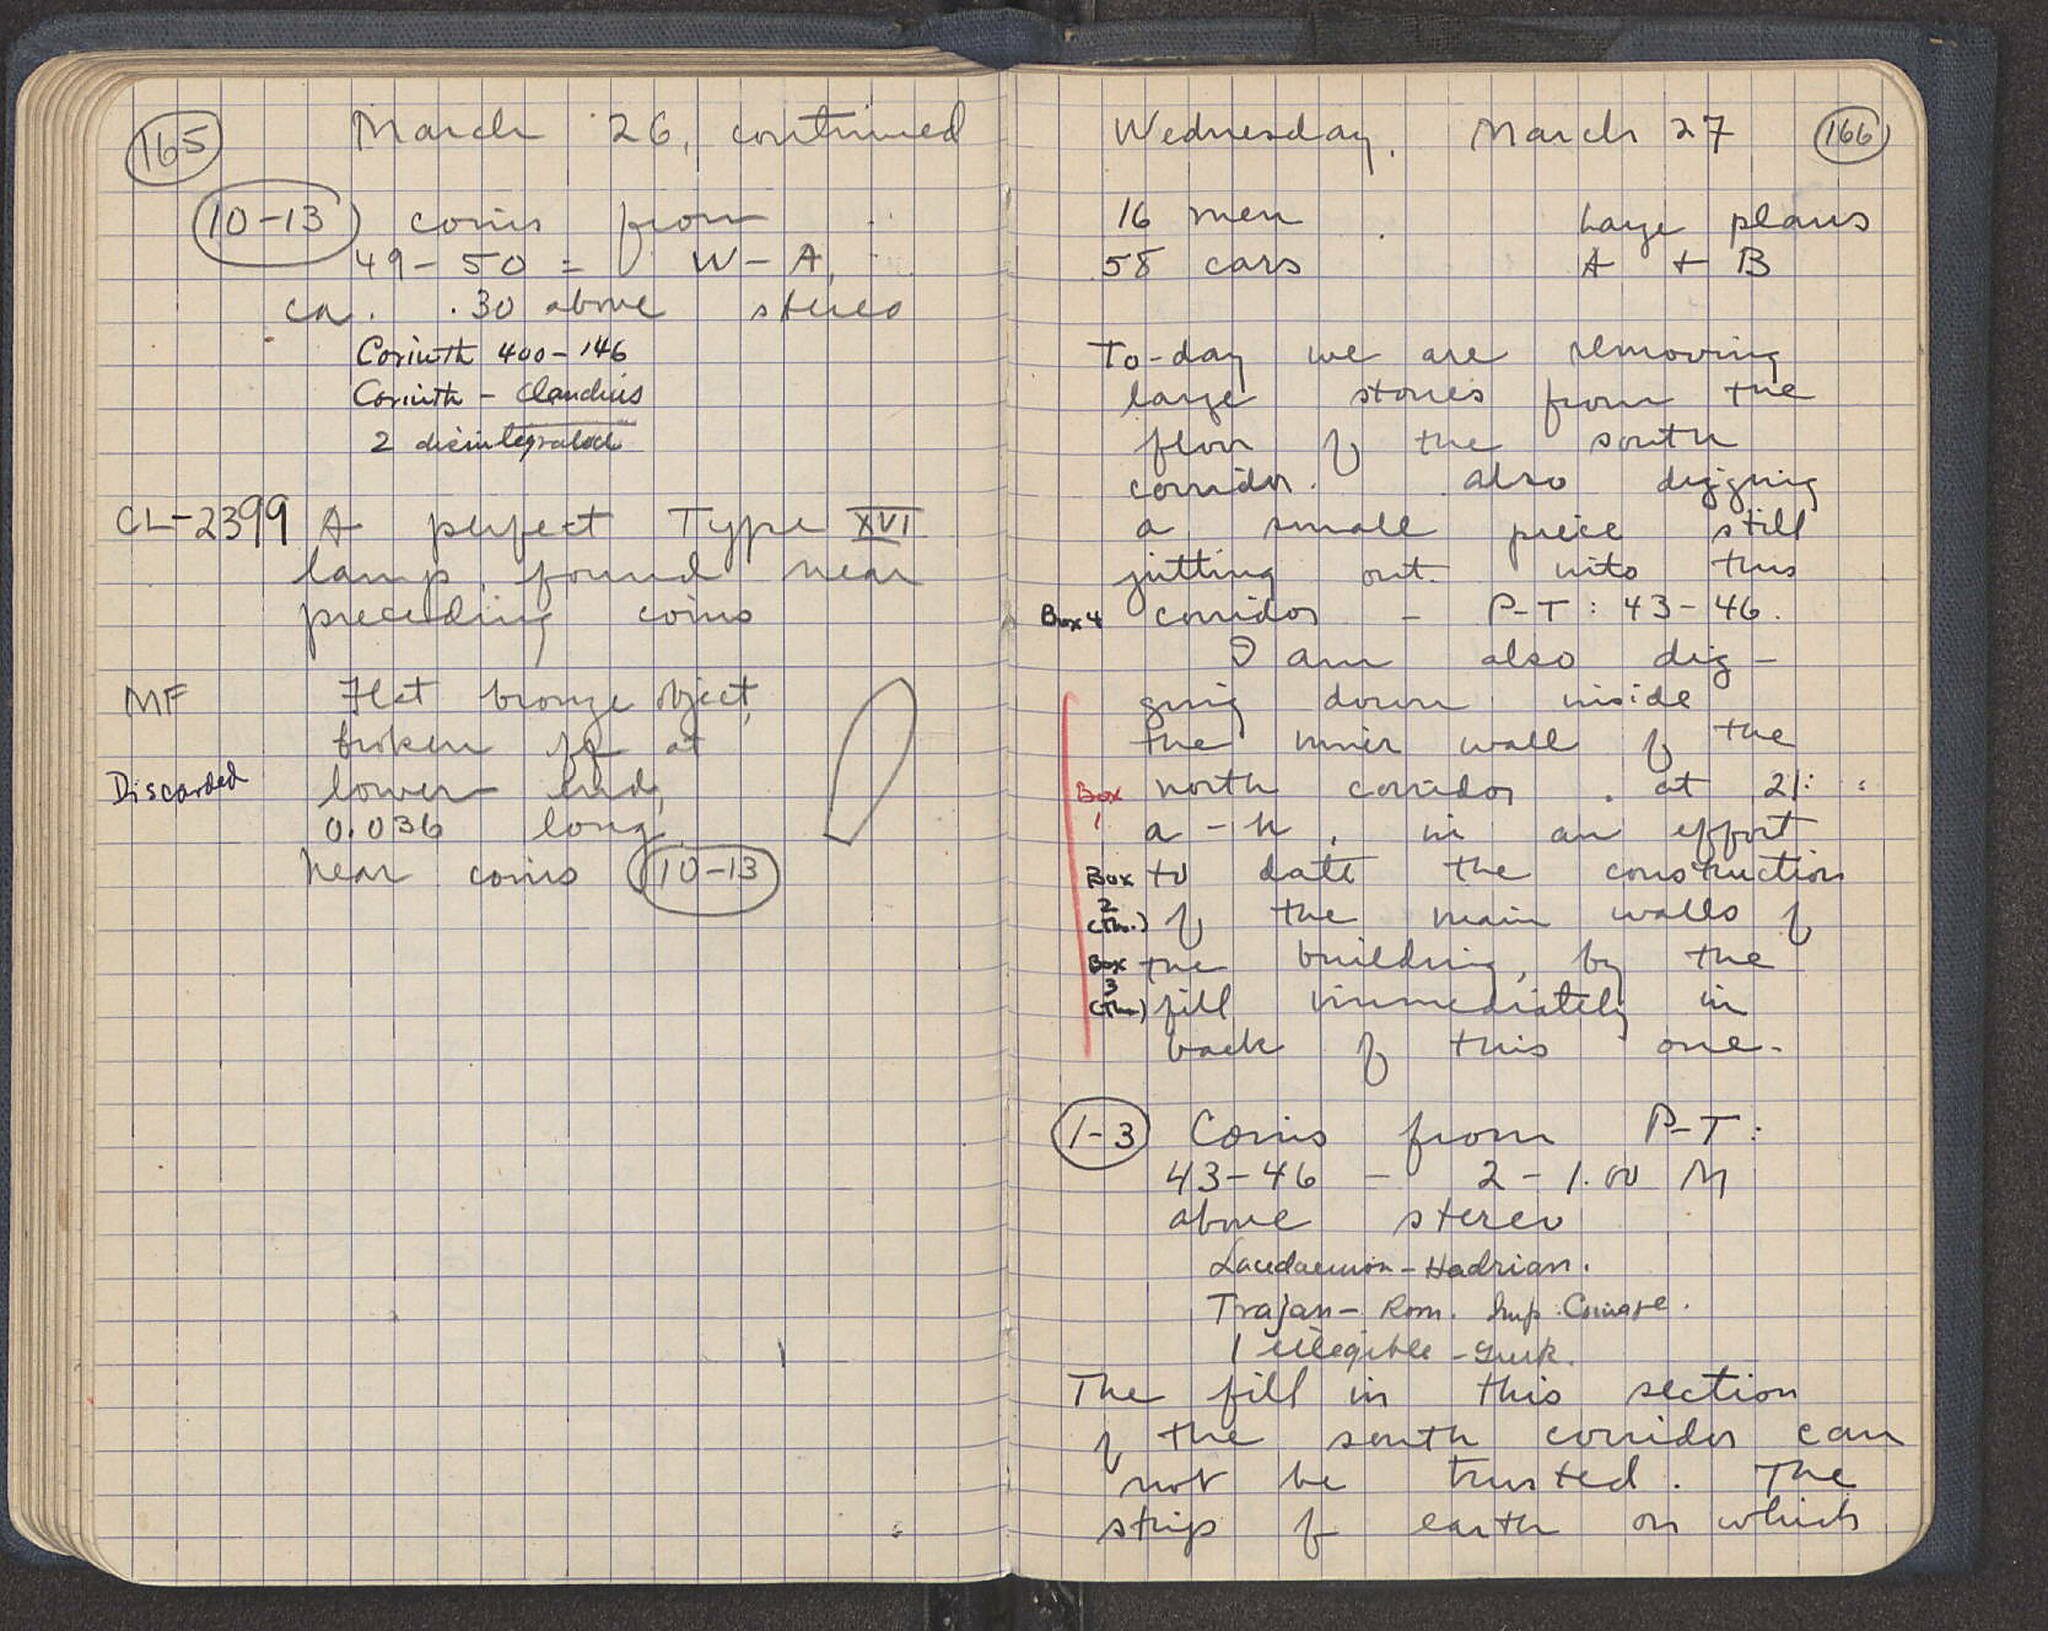 165
March 26, continued
10-13 coins from
49-50 = W-A,
ca. .30 above stereo
Corinth 400-146
Corinth - Claudius
2 disintegrated
CL-2399 A perfect Type XVI
lamp, found near
preceding coins
MF Flat bronze object,
broken off at
Discarded lower end,
0.036 long,
near coins 10-13
Wednesday, March 27 166
16 men Large plans
58 cars A + B
To-day we are removing
large stones from the
floor of the south
corridor. also digging
a small piece still
jutting out into this
Box 4 corridor - P-T: 43-46.
I am also dig-
ging down inside
the inner wall of the
Box north corridor. at 21:
1 a - , in an effort
Box to date the construction
2
(Th.) of the main walls of
Box the building, by the
3
(Th.) fill immediately in
back of this one.
1-3 Coins from P-T:
43-46 - 2-1.00 M
above stereo
Lacedaemon - Hadrian.
Trajan - Rom. Imp. Coinage.
1 illegible - Greek.
The fill in this section
of the south corridor can
not be trusted. The
strip of earth on which